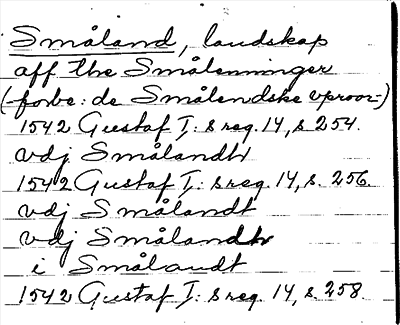 Småland, landskap
aff the Smålenninger
(forbe: de Smålendske vproor-)
1542 Gustaf I: s reg. 14, s. 254.
vdj Smålandh
1542 Gustaf I: s reg. 14, s. 256.
vdj Smålandt
vdj Smålandh
i Smålandt
1542 Gustaf I: s reg. 14, s. 258.